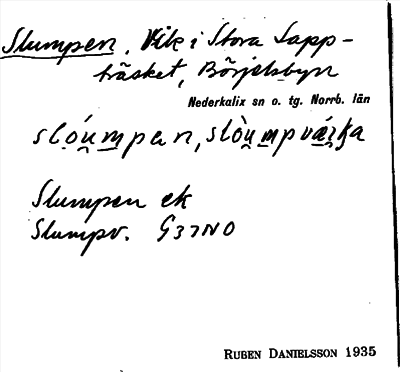 Slumpen, Vik i Stora Lapp-
träsket, Börjelsbyn
Nederkalix sn o. tg. Norrb. län
slóu̯mpan, slòu̯mpvǽʈa
Slumpen ek
Slumpv. G37NO
RUBEN DANIELSSON 1935